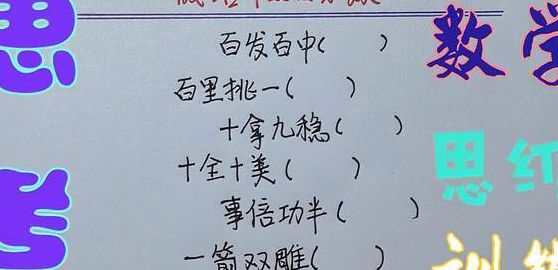 思
考
百发百中(    )
百里挑一(    )
十拿九稳(    )
十全十美(    )
事倍功半(    )
一箭双雕(    )
数学
思维
训练